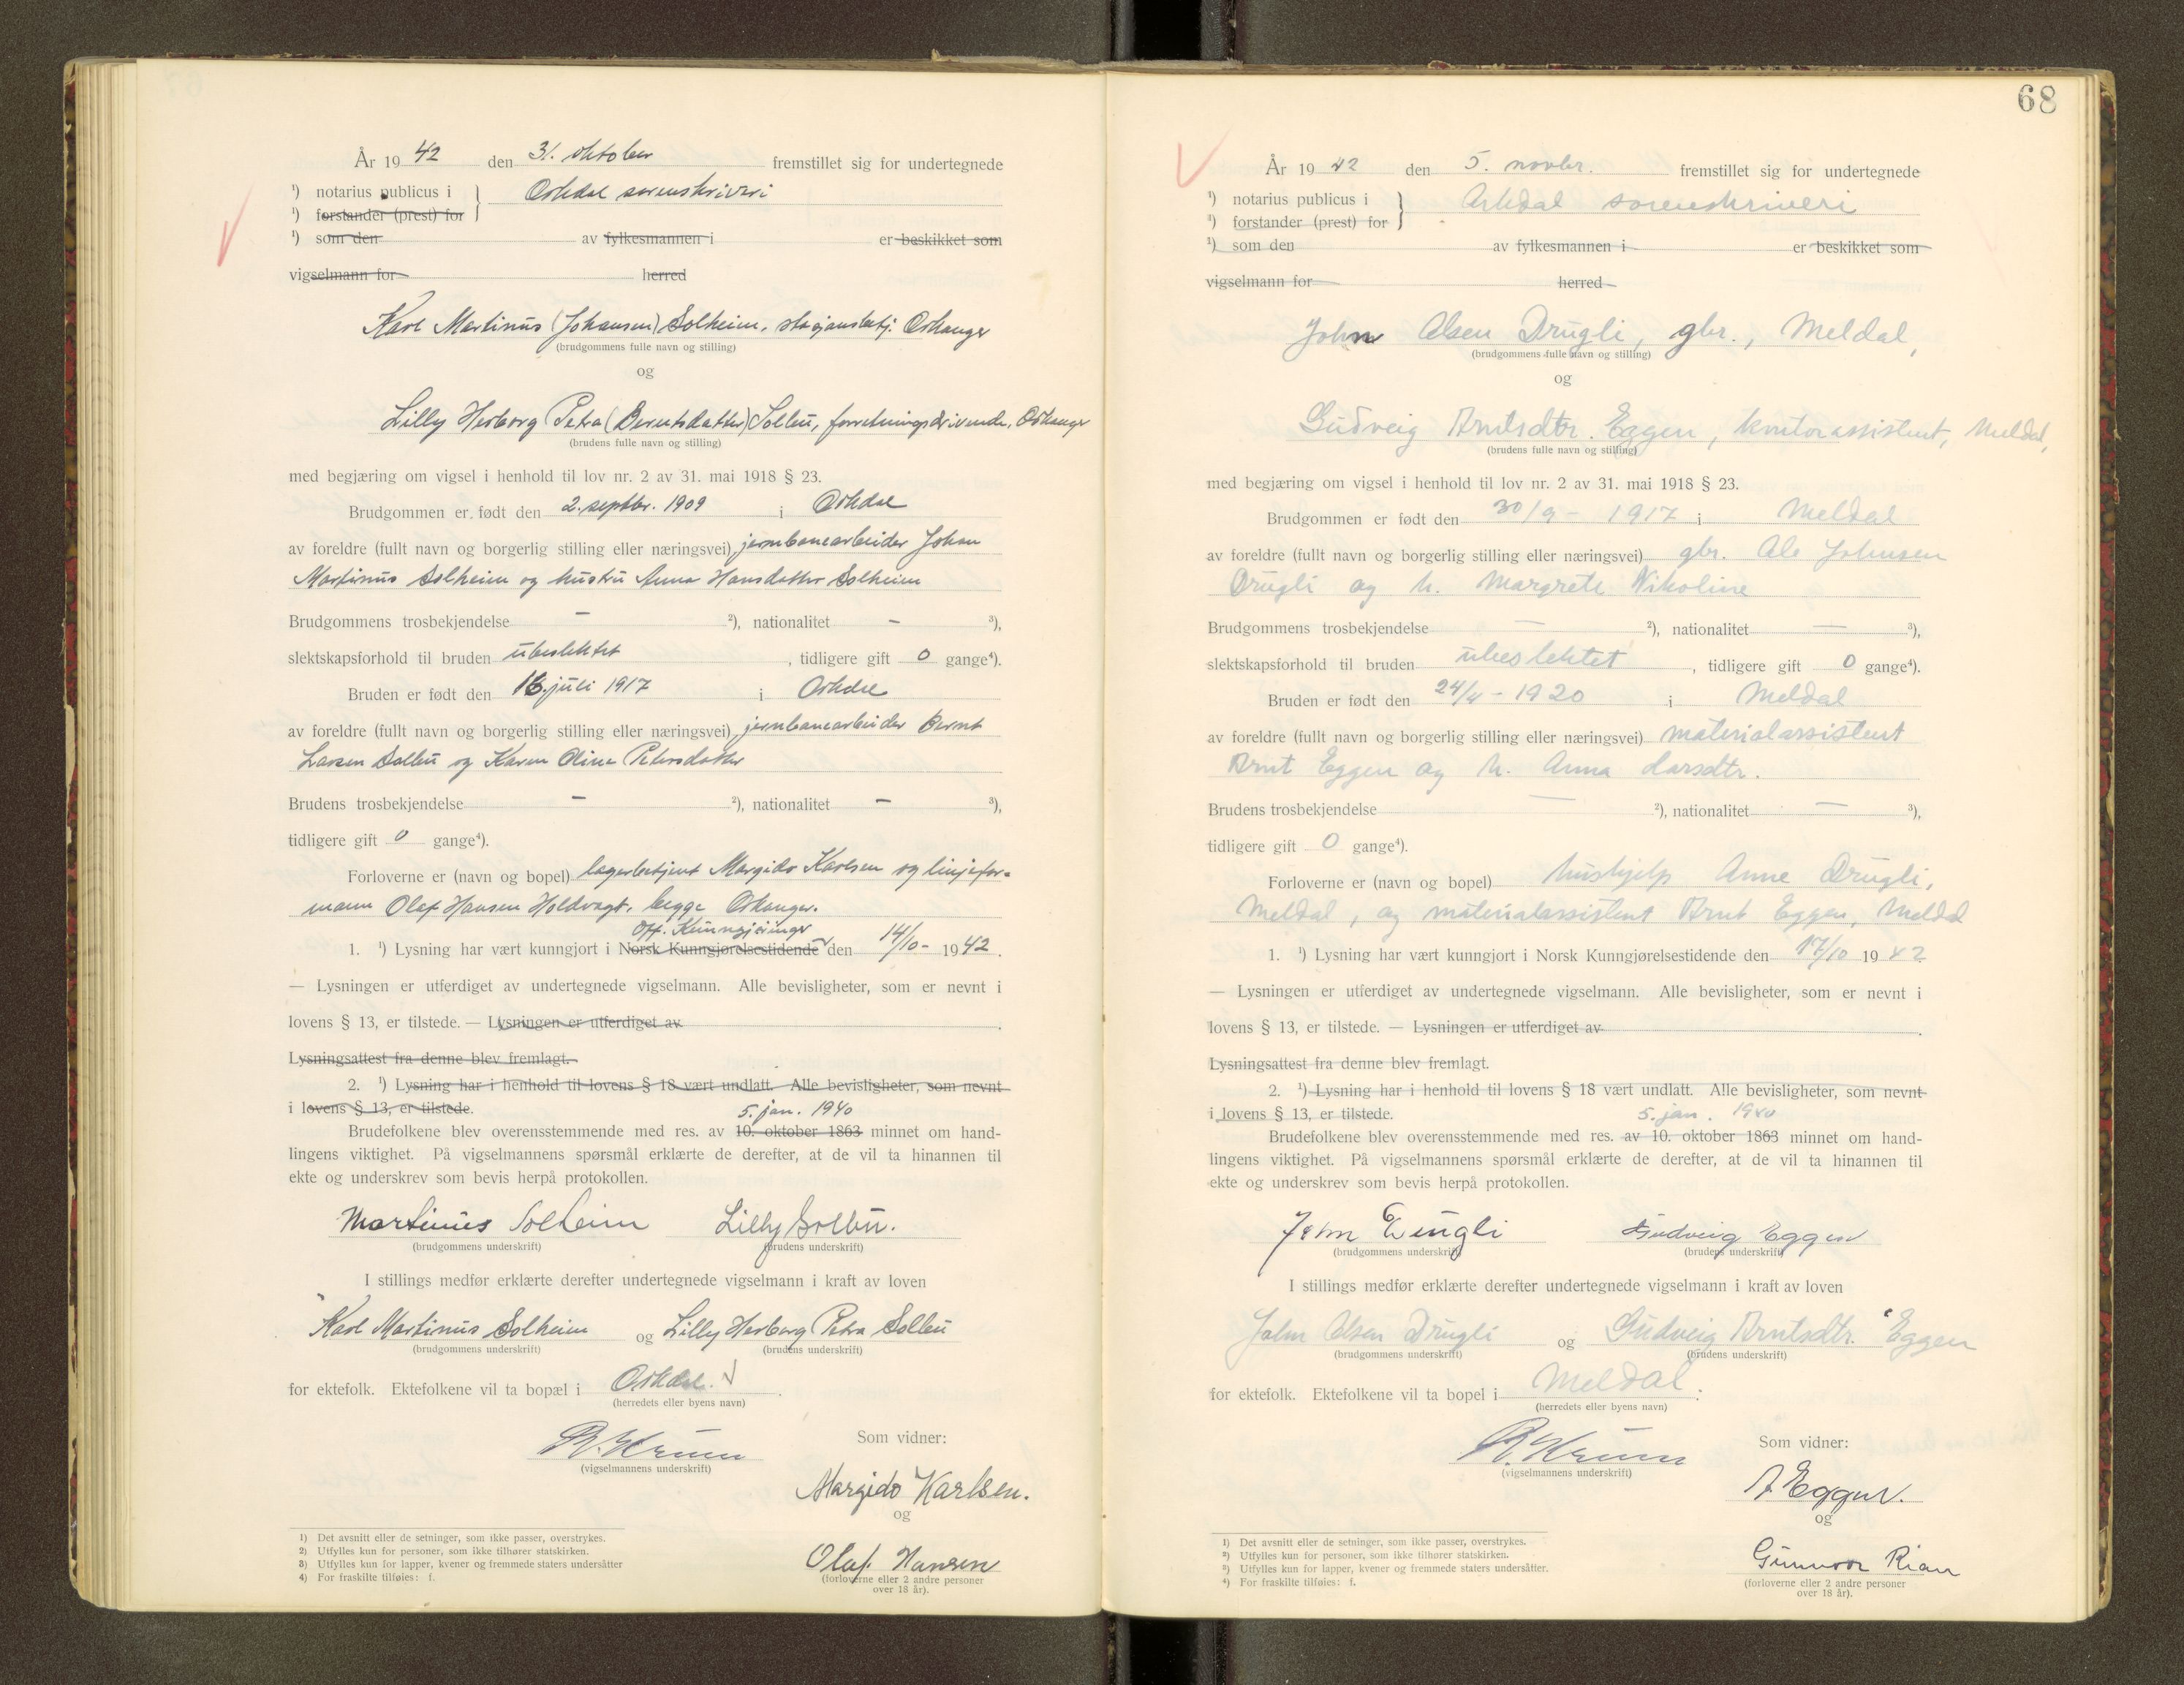 År 19 42 den 31. oktober fremstillet sig for undertegnede
¹) notarius publicus i } Orkdal sorenskriveri
¹) forstander (prest) for
¹) som den av fylkesmannen i er beskikket som
vigselmann for herred
Karl Martinus (Johansen) Solheim, stasjonsbetj. Orkanger
(brudgommens fulle navn og stilling)
og
Lilly Herborg Petra (Berntsdatter) Solbu, forretningsdrivende, Orkanger
(brudens fulle navn og stilling)
med begjæring om vigsel i henhold til lov nr. 2 av 31. mai 1918 § 23.
Brudgommen er født den 2. septbr. 1909 i Orkdal
av foreldre (fullt navn og borgerlig stilling eller næringsvei) jernbanearbeider Johan
Martinus Solheim og hustru Anna Hansdatter Solheim
Brudgommens trosbekjendelse – ²), nationalitet – ³),
slektskapsforhold til bruden ubeslektet, tidligere gift 0 gange⁴).
Bruden er født den 16. juli 1917 i Orkdal
av foreldre (fullt navn og borgerlig stilling eller næringsvei) jernbanearbeider Bernt
Larsen Solbu og Karen Oline Petersdatter
Brudens trosbekjendelse – ²), nationalitet – ³),
tidligere gift 0 gange⁴).
Forloverne er (navn og bopel) lagerbetjent Margido Karlsen og linjefor-
mann Olaf Hansen Holdvagt, begge Orkanger.
Off. Kunngjøringer
1. ¹) Lysning har vært kunngjort i Norsk Kunngjørelsestidende den 14/10- 1942.
— Lysningen er utferdiget av undertegnede vigselmann. Alle bevisligheter, som er nevnt i
lovens § 13, er tilstede. — Lysningen er utferdiget av .
Lysningsattest fra denne blev fremlagt.
2. ¹) Lysning har i henhold til lovens § 18 vært undlatt. Alle bevisligheter, som nevnt
i lovens § 13, er tilstede.
5. jan. 1940
Brudefolkene blev overensstemmende med res. av 10. oktober 1863 minnet om hand-
lingens viktighet. På vigselmannens spørsmål erklærte de derefter, at de vil ta hinannen til
ekte og underskrev som bevis herpå protokollen.
Martinus Solheim Lilly Solbu.
(brudgommens underskrift) (brudens underskrift)
I stillings medfør erklærte derefter undertegnede vigselmann i kraft av loven
Karl Martinus Solheim og Lilly Herborg Petra Solbu
(brudgommens underskrift) (brudens underskrift)
for ektefolk. Ektefolkene vil ta bopæl i Orkdal.
(herredets eller byens navn)
(vigselmannens underskrift)
Som vidner:
Margido Karlsen.
og
Olaf Hansen
(forloverne eller 2 andre personer
over 18 år).
1) Det avsnitt eller de setninger, som ikke passer, overstrykes.
2) Utfylles kun for personer, som ikke tilhører statskirken.
3) Utfylles kun for lapper, kvener og fremmede staters undersåtter
4) For fraskilte tilføies: f.
68
År 19 42 den 5. novbr. fremstillet sig for undertegnede
¹) notarius publicus i } Orkdal sorenskriveri
¹) forstander (prest) for
¹) som den av fylkesmannen i er beskikket som
vigselmann for herred
John Olsen Drugli, gbr., Meldal,
(brudgommens fulle navn og stilling)
og
Gudveig Arntsdtr. Eggen, kontorassistent, Meldal,
(brudens fulle navn og stilling)
med begjæring om vigsel i henhold til lov nr. 2 av 31. mai 1918 § 23.
Brudgommen er født den 30/9 - 1917 i Meldal
av foreldre (fullt navn og borgerlig stilling eller næringsvei) gbr. Ole Johnsen
Drugli og h. Margrete Nikoline
Brudgommens trosbekjendelse — ²), nationalitet — ³),
slektskapsforhold til bruden ubeslektet, tidligere gift 0 gange⁴).
Bruden er født den 24/4 - 1920 i Meldal
av foreldre (fullt navn og borgerlig stilling eller næringsvei) materialassistent
Arnt Eggen og h. Anna Larsdtr.
Brudens trosbekjendelse — ²), nationalitet — ³),
tidligere gift 0 gange⁴).
Forloverne er (navn og bopel) hushjelp Anne Drugli,
Meldal, og materialassistent Arnt Eggen, Meldal
1. ¹) Lysning har vært kunngjort i Norsk Kunngjørelsestidende den 17/10 19 42
— Lysningen er utferdiget av undertegnede vigselmann. Alle bevisligheter, som er nevnt i
lovens § 13, er tilstede. — Lysningen er utferdiget av .
Lysningsattest fra denne blev fremlagt.
2. ¹) Lysning har i henhold til lovens § 18 vært undlatt. Alle bevisligheter, som nevnt
i lovens § 13, er tilstede.
5. jan. 1940
Brudefolkene blev overensstemmende med res. av 10. oktober 1863 minnet om hand-
lingens viktighet. På vigselmannens spørsmål erklærte de derefter, at de vil ta hinannen til
ekte og underskrev som bevis herpå protokollen.
John Drugli Gudveig Eggen
(brudgommens underskrift) (brudens underskrift)
I stillings medfør erklærte derefter undertegnede vigselmann i kraft av loven
John Olsen Drugli og Gudveig Arntsdtr. Eggen
(brudgommens underskrift) (brudens underskrift)
for ektefolk. Ektefolkene vil ta bopel i Meldal.
(herredets eller byens navn)
(vigselmannens underskrift)
Som vidner:
A Eggen.
og
Gunnvor Rian
(forloverne eller 2 andre personer
over 18 år).
1) Det avsnitt eller de setninger, som ikke passer, overstrykes.
2) Utfylles kun for personer, som ikke tilhører statskirken.
3) Utfylles kun for lapper, kvener og fremmede staters undersåtter.
4) For fraskilte tilføies: f.